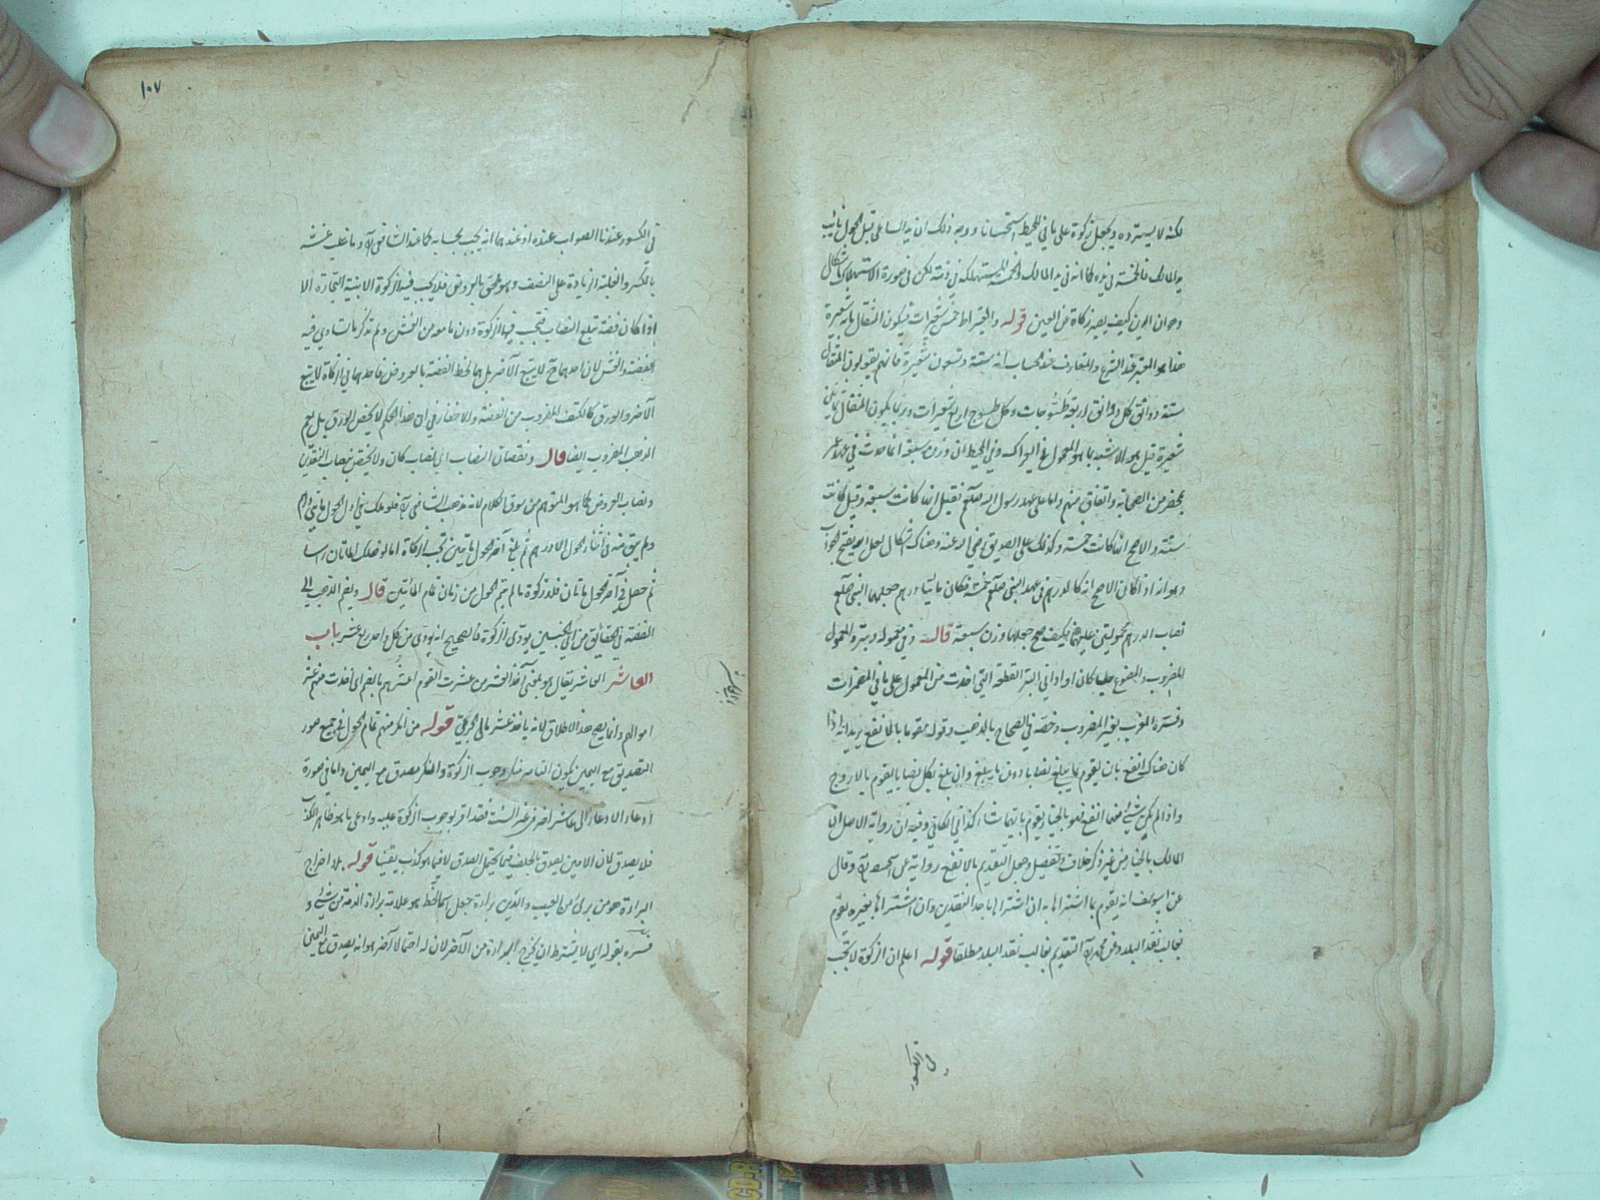 لكنه لا يسترده ويجعل زكوة على ما في المحيط استحسانا ووجه ذلك ان يد الساعي قبل الحول نائب
يد المالك فالخمسة في يده كما انه في يد المالك والخمسة المستهلكة في ذمته لكن في صورة الاستهلاك اشكال
وهو ان الدين كيف يصير زكاة عن العين قوله والقيراط خمس شعيرات فيكون المثقال مائة شعيرة
هذا هو المعتبر عند الشرع والمتعارف عند الحساب انه ستة وتسعون شعيرة فانهم يقولون المثقال
ستة دوانق كل دوانق اربعة طسوجات وكل طسوج اربع شعيرات وربما يكون المثقال
شعيرة قيل هو الاشبه بما هو المعمول في وفي المحيط ان وزن سبعة انما حدث في عهد عمر
بمحضر من الصحابة واتفاق منهم واما على عهد رسول الله صلعم فقيل انها كانت سبعة وقيل كانت
ستة والاصح انها كانت خمسة وكذلك على الصديق رضي الله عنه وهناك اشكال لعل الله يفتح
وهو انه اذا كان الاصح انه كان الدرهم في عهد النبي صلعم خمسة فكان مائتا درهم جعلها النبي صلعم
نصاب الدرهم محمولتين عليها فكيف صح جعلها وزن سبعة قال وفي معموله وتبره والمعمول
المضروب والمصنوع حليا كان او اواني التبر القطعة التي اخذت من المعمول على ما في المضمرات
وفسره المغرب بغير المضروب وخصه في الصحاح بالذهب وقوله مقوما بالانفع يريد انه اذا
كان هناك انفع بان يقوم بما يبلغ نصابا دون ما يبلغ وان بلغ بكل نصابا يقوم بالاروج
واذا لم يكن شيء منهما انفع فهو بالخيار يقوم بايهما شاء كذا في الكافي وفيه ان رواية الاصل ان
المالك بالخيار من غير ذكر خلاف وتفصيل وجعل التقديم بالانفع رواية عن وقال
عن ابي يوسف انه يقوم بما اشتراها به ان اشتراها باحد النقدين وان اشتراها بغيره يقوم
بغالب نقد البلد وعن محمد رح التقديم بغالب نقد البلد مطلقا قوله اعلم ان الزكوة لا تجب
في الكسور
١٠٧
في الكسور عندنا الصواب عنده اذ عندهما انه يجب بحسابه كما عند الشافعي رح وما غلب غشه
بالكسر والغلبة الزيادة على النصف وهو ملحق بالزيوف فلا يجب فيه الزكوة الا بنية التجارة الا
اذا كان فضته تبلغ النصاب فتجب فيها الزكوة دون ما معه من الغش ولم تذكر ما تساوي فيه
الفضة والغش لان احدهما ح لا يتبع الآخر بل هما كخلط الفضة بالعروض فاحدهما في الزكاة لا يتبع
الآخر والورق ككتف المضروب من الفضة ولا خفاء في ان هذا الحكم لا يخص الورق بل يعم
الذهب المضروب ايضا قال ونقصان النصاب اي نصاب كان ولا يختص بنصاب النقدين
ونصاب العروض كما هو المتوهم من سوق الكلام لانه مذهب الشافعي رح فلو ملك في اول الحول مائتي درهم
ولم يبق منه في اثناء الحول الا درهم ثم بلغ آخر الحول مائتين تجب الزكاة اما لو هلك المائتان
ثم حصل في آخر الحول مائتان فلا زكوة ما لم يتم الحول من زمان تمام المائتين قال ويضم الذهب الى
الفضة في الحقائق من اي الجنسين يودى الزكوة فالصحيح انه يودى من كل واحد ربع عشر باب
العاشر العاشر يقال هو بمعنى آخذ العشر من عشرت القوم اعشرهم بالضم اي اخذت منهم عشر
اموالهم وانما يصح هذا الاطلاق لانه ياخذ عشر مال الحربي قوله من انكر منهم تمام الحول في جميع صور
التصديق مع اليمين يكون التاجر منكر وجوب الزكوة والمنكر مصدق مع اليمين واما في صورة
ادعاء الاداء الى عاشر آخر في غير السنة فقد اقر بوجوب الزكوة عليه وادعى ما هو ظاهر الكذب
فلا يصدق لان الامين يصدق بالحلف فيما يحتمل الصدق لا فيما هو كذب يقينا قوله بلا اخراج
البراءة هو من برئ من العيب والدين براءة جعل اسما لخط هو علامة براءة الذمة من شيء و
فسره بقوله اي لا يشترط ان يخرج البراءة من الآخر لان له احتمالا آخر هو انه يصدق مع اليمين